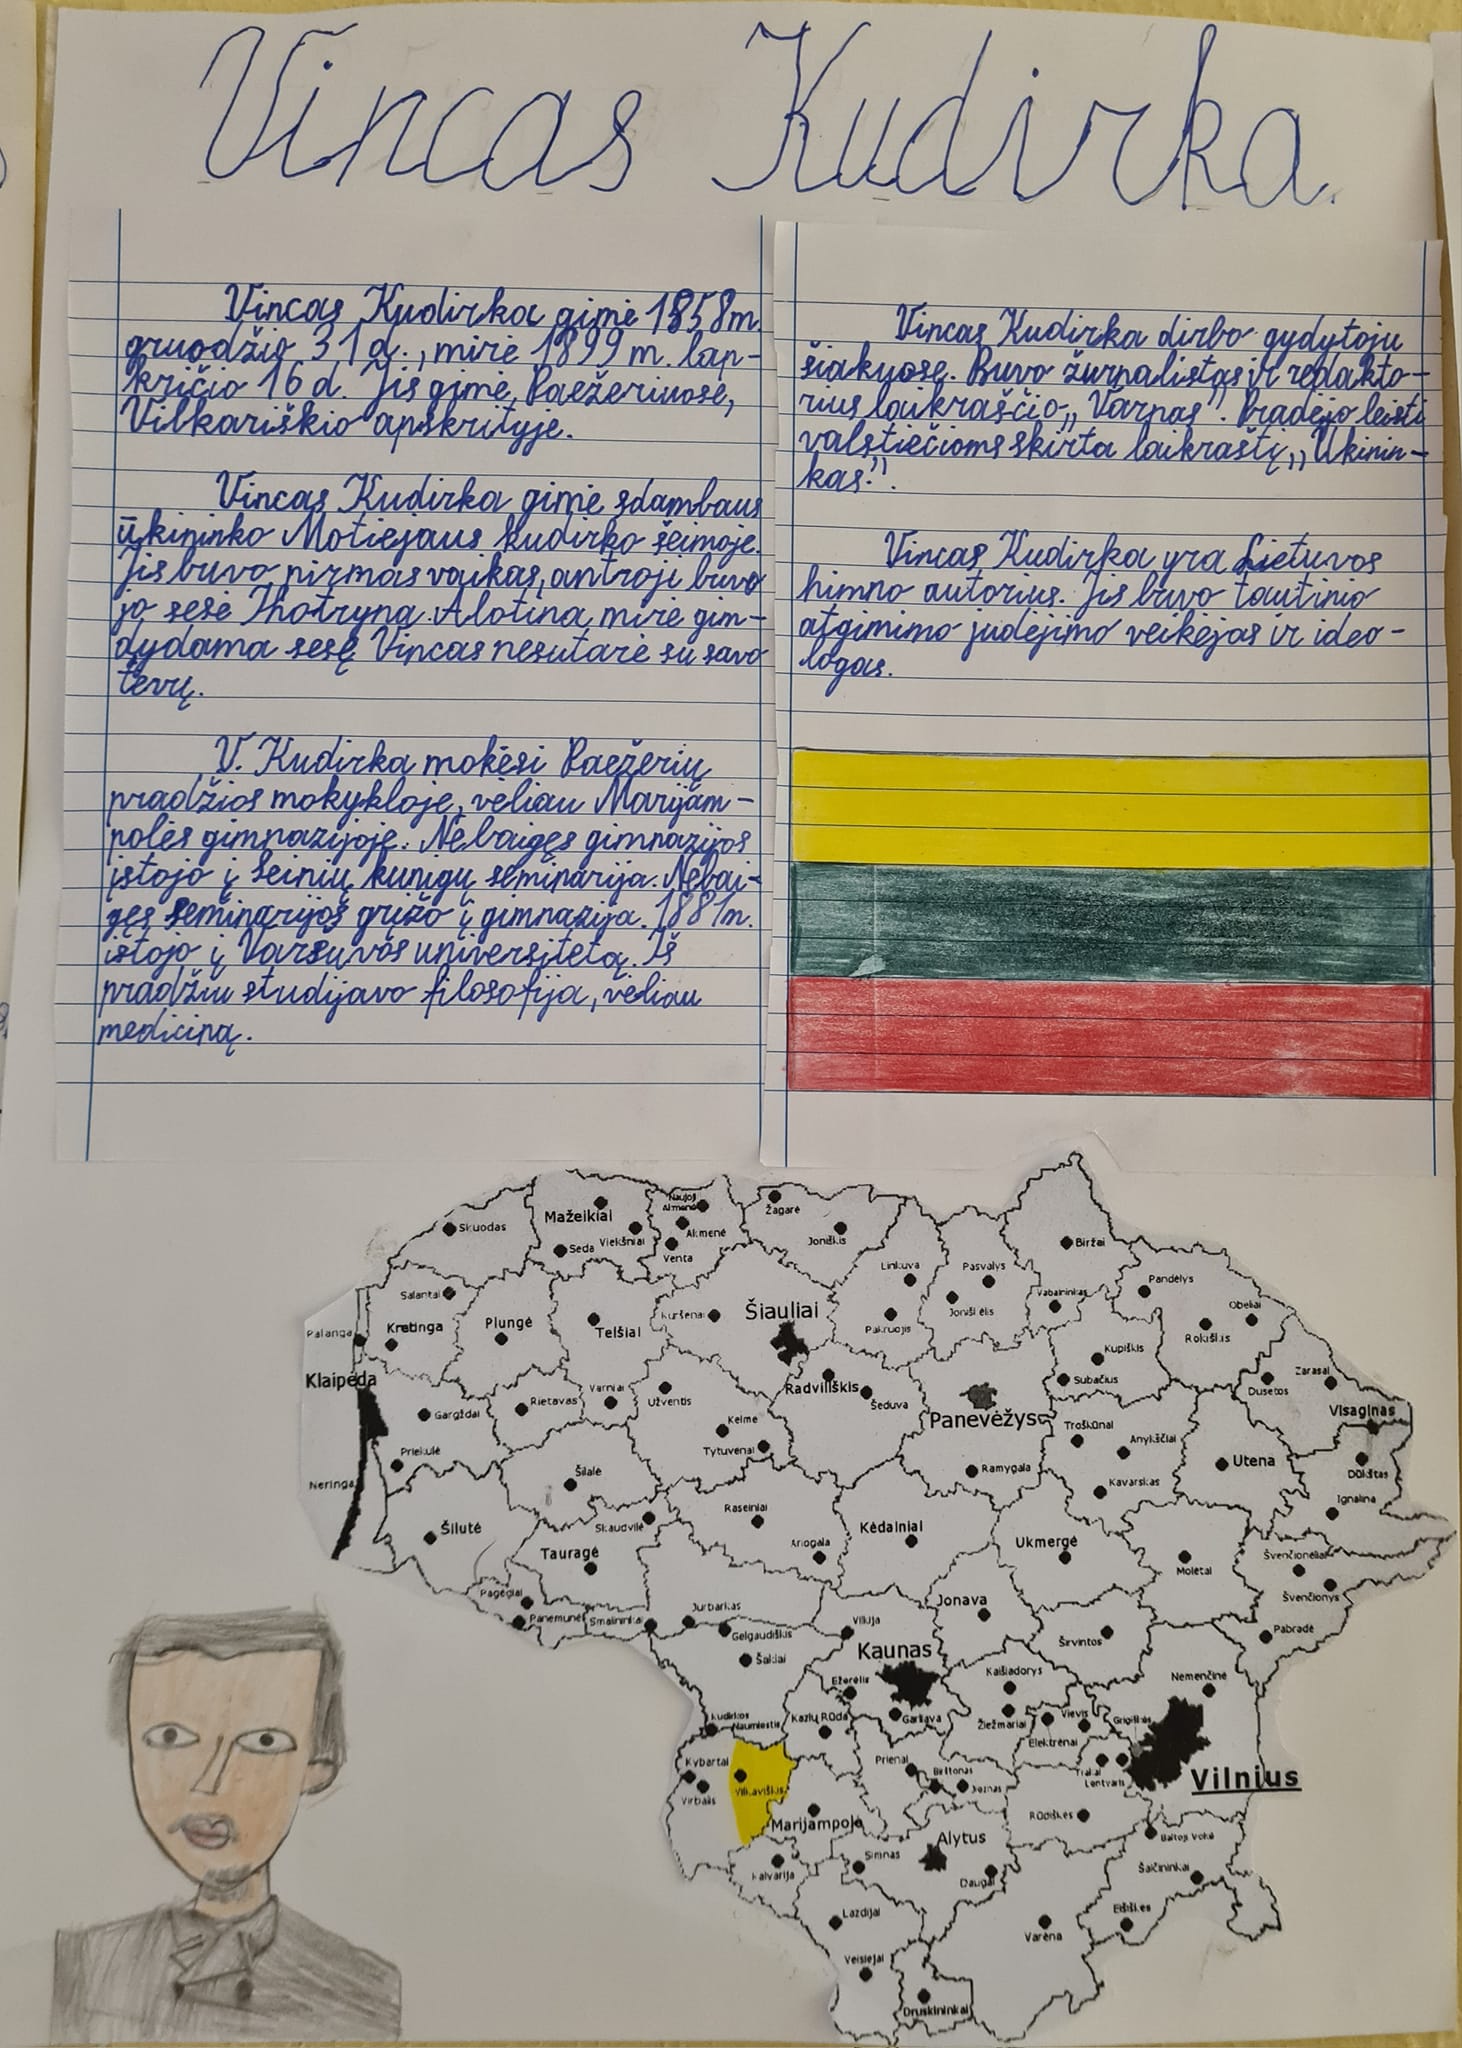 Vincas Kudirka
Vincas Kudirka gimė 1858m.
gruodžio 31 d., mirė 1899 m. lap-
kričio 16 d. Jis gimė, Paežeriuose,
Vilkariškio apskrityje.
Vincas Kudirka gimė sdambaus
ūkininko Motiejaus Kudirko šeimoje.
Jis buvo pirmas vaikas, antroji buvo
jo sesė
mirė gim-
dydama sesę Vincas nesutarė su savo
tėvų.
V. Kudirka mokėsi Paežerių
pradžios mokykloje, vėliau Marijam-
polės gimnazijoje. Nebaigęs gimnazijos
įstojo į Seinių kunigų seminarija. Nebai-
gęs seminarijos grįžo į gimnazija. 1881m.
įstojo į Varšuvos universitetą. Iš
pradžiu studijavo filosofija, vėliau
mediciną.
Vincas Kudirka dirbo gydytoju
šiakyose. Buvo žurnalistas ir redakto-
rius laikraščio „Varpas". Pradėjo leisti
valstiečioms skirta laikraštį „Ūkinin-
kas".
Vincas Kudirka yra Lietuvos
himno autorius. Jis buvo tautinio
atgimimo judėjimo veikėjas ir ideo-
logas.
Skuodas
Mažeikiai
Seda
Viekšniai
Naujoji
Akmenė
Akmenė
Venta
Žagarė
Joniškis
Biržai
Linkuva
Pasvalys
Pandėlys
Salantai
Joniškėlis
Vabalninkas
Obeliai
Palanga
Kretinga
Plungė
Telšiai
Kuršėnai
Šiauliai
Pakruojis
Rokiškis
Kupiškis
Zarasai
Klaipėda
Gargždai
Rietavas
Varniai
Užventis
Radviliškis
Šeduva
Subačius
Dusetos
Visaginas
Panevėžys
Kelmė
Tytuvėnai
Troškūnai
Anykščiai
Utena
Dūkštas
Priekulė
Neringa
Šilalė
Ramygala
Kavarskas
Ignalina
Šilutė
Skaudvilė
Raseiniai
Ariogala
Kėdainiai
Ukmergė
Molėtai
Švenčionėliai
Tauragė
Švenčionys
Pagėgiai
Panemunė
Smalininkai
Jurbarkas
Gelgaudiškis
Vilkija
Jonava
Širvintos
Pabradė
Šakiai
Kaunas
Ežerėlis
Kaišiadorys
Nemenčinė
Kudirkos
Naumiestis
Kazlų Rūda
Garliava
Žiežmariai
Vievis
Grigiškės
Elektrėnai
Kybartai
Virbalis
Vilkaviškis
Prienai
Birštonas
Jieznas
Trakai
Lentvaris
Vilnius
Marijampolė
Alytus
Rūdiškės
Baltoji Vokė
Kalvarija
Simnas
Daugai
Šalčininkai
Lazdijai
Varėna
Eišiškės
Veisiejai
Druskininkai